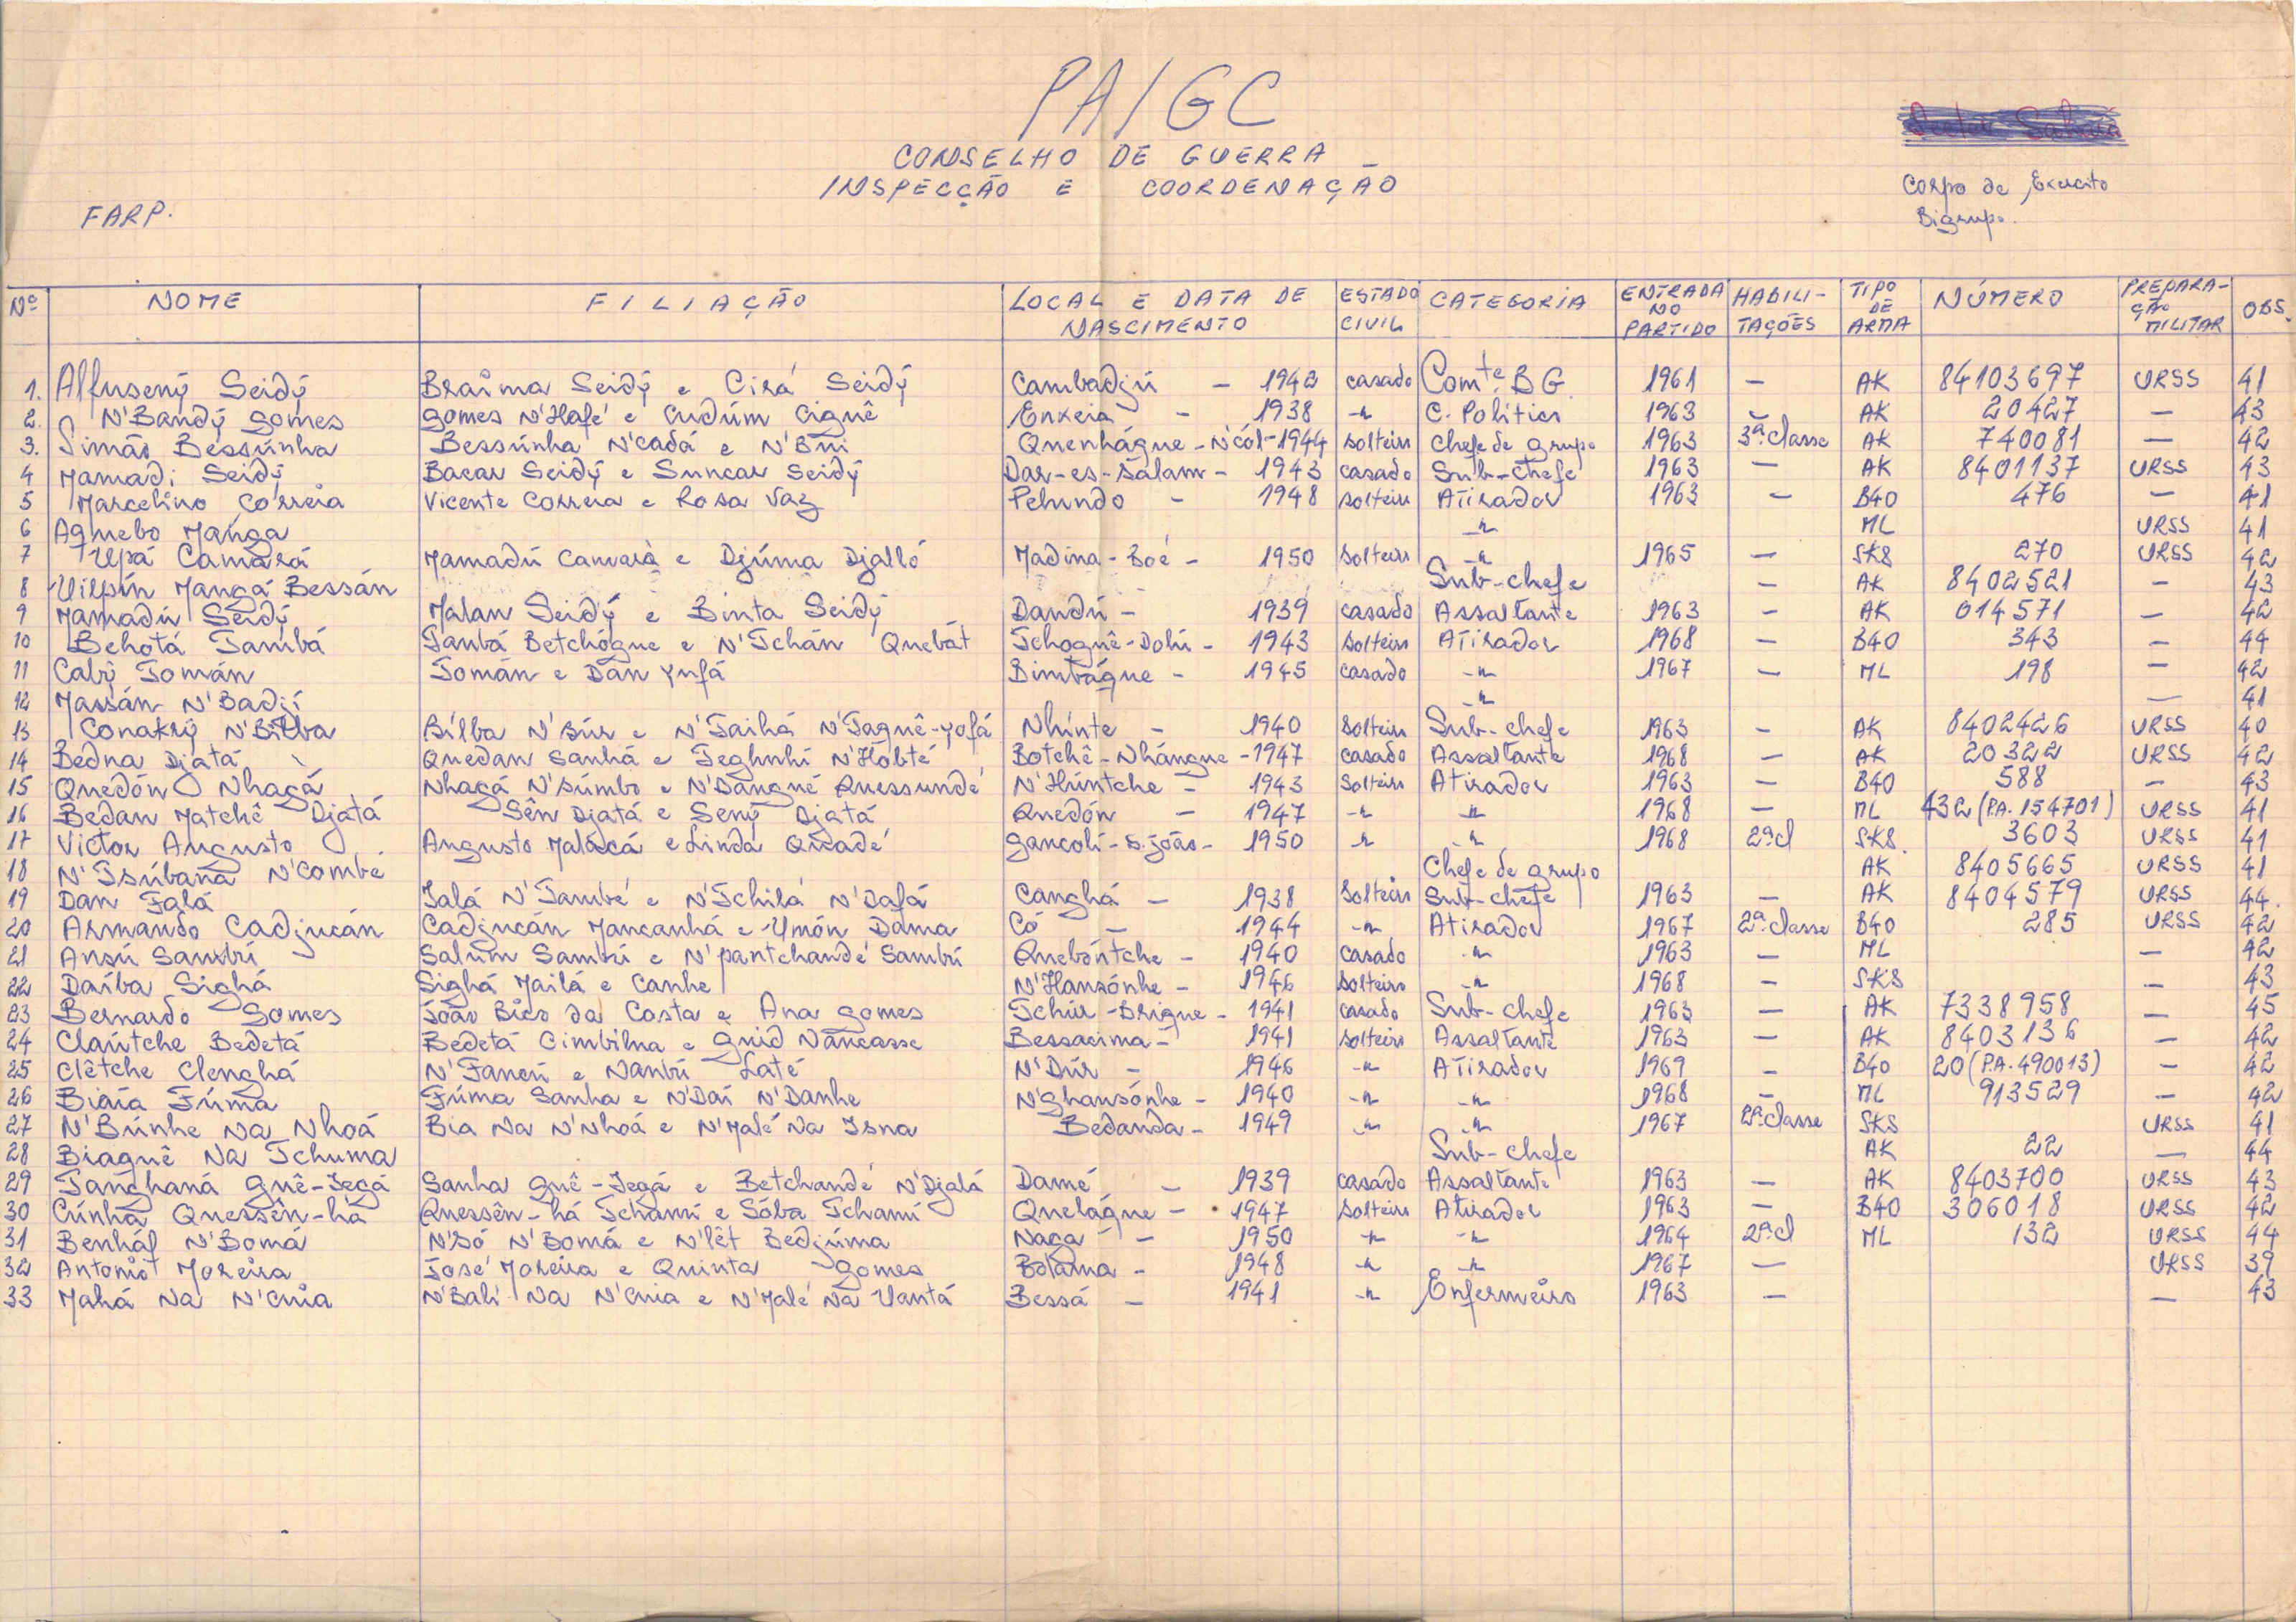 PAIGC
CONSELHO DE GUERRA
INSPECÇÃO E COORDENAÇÃO
Corpo de Exercito
Bigrupo.
FARP.
Nº NOME FILIAÇÃO LOCAL E DATA DE NASCIMENTO ESTADO CIVIL CATEGORIA ENTRADA NO PARTIDO HABILI-TAÇÕES TIPO DE ARMA NÚMERO PREPARA-ÇÃO MILITAR OBS.
1. Alfusený Seidý Braima Seidý e Cirá Seidý Cambadjú - 1942 casado Comte BG. 1961 — AK 84103697 URSS 41
2. N'Bandý Gomes Gomes N'Hafé e Cudúm Ciguê Enxeia - 1938 -"- C. Político 1963 - AK 20427 — 43
3. Simão Bessúnha Bessúnha N'cadá e N'Bni Quenhágue - N'cól - 1944 solteiro Chefe de grupo 1963 3ª classe AK 740081 — 42
4 Mamadi Seidý Bacar Seidý e Suncar Seidý Dar-es-Salam - 1943 casado Sub-chefe 1963 — AK 8401137 URSS 43
5 Marcelino Correia Vicente Correia e Rosa Vaz Pelundo - 1948 solteiro Atirador 1963 — B40 476 — 41
6 Agnebo Manga -"- ML URSS 41
7 Upá Camará Mamadú Camará e Djúma Djalló Madina-Boé - 1950 solteiro -"- 1965 — SKS 270 URSS 42
8 Uilpín Mangá Bessán Sub-chefe - AK 8402521 - 43
9 Mamadú Seidý Malan Seidý e Binta Seidý Dandú - 1939 casado Assaltante 1963 — AK 014571 — 42
10 Behotá Tambá Tanbá Betchógue e N'Tchán Quebát Tchoguê-Dolú - 1943 solteiro Atirador 1968 — B40 343 — 44
11 Calý Tomán Tomán e Dán Yufá Bimbágue - 1945 casado -"- 1967 — ML 198 — 42
12 Massán N'Badjí -"- — 41
13 Conakrý N'Bílba Bílba N'Búr e N'Taihá N'Taguê-Yofá Nhínte - 1940 solteiro Sub-chefe 1963 - AK 8402426 URSS 40
14 Bedna Djatá Quedan Sanhá e Teghnhi N'Hóbté Botchê-Nhángue - 1947 casado Assaltante 1968 — AK 20322 URSS 42
15 Quedón Nhagá Nhagá N'Súmbo e N'Dangné Quessundé N'Húntche - 1943 Solteiro Atirador 1963 — B40 588 — 43
16 Bedan Matchê Djatá Sên Djatá e Sený Djatá Quedón - 1947 -"- -"- 1968 — ML 432 (P.A. 154701) URSS 41
17 Victor Augusto Augusto Malácá e Linda Quadé Gancoli - S. João - 1950 -"- -"- 1968 2ª cl SKS. 3603 URSS 41
18 N'Tsúbana N'Combé Chefe de grupo AK 8405665 URSS 41
19 Dan Falá Ialá N'També e N'Tchilá N'Dafá Canghá — 1938 Solteiro Sub-chefe 1963 — AK 8404579 URSS 44.
20 Armando Cadjucán Cadjucán Mancanhá e Umón Dama Có — 1944 -"- Atirador 1967 2ª classe B40 285 URSS 42
21 Ansú Sambú Salúm Sambú e N'pantchandé Sambú Quebóntche - 1940 casado -"- 1963 — ML — 42
22 Daíba Sighá Sighá Mailá e Canhe N'Hansónhe - 1946 solteiro -"- 1968 — SKS - 43
23 Bernardo Gomes João Bico da Costa e Ana Gomes Tchúr-Brigue - 1941 casado Sub-chefe 1963 — AK 7338958 — 45
24 Claútche Bedetá Bedetá Cimbilna e Gnid Nancasse Bessacima - 1941 solteiro Assaltante 1963 - AK 8403136 - 42
25 Clêtche Clenghá N'Fancú e Nanbú Laté N'Dúr - 1946 -"- Atirador 1969 - B40 20 (P.A. 490013) - 42
26 Biaia Fúma Fúma Sanha e N'Daí N'Danhe N'Ghansónhe - 1940 -"- -"- 1968 - ML 913529 - 42
27 N'Búnhe Na Nhoá Bia Na N'Nhoá e N'Malé Na Isna Bedanda - 1949 -"- -"- 1967 2ª classe SKS URSS 41
28 Biaguê Na Tchuma Sub-chefe AK 22 — 44
29 Tanghaná Guê-Iegá Sanha Guê-Iegá e Betchandé N'Djalá Damé — 1939 casado Assaltante 1963 — AK 8403700 URSS 43
30 Cúnha Quessên-há Quessên-há Tchami e Sóba Tchami Quelágue - 1947 solteiro Atirador 1963 — B40 306018 URSS 42
31 Benháf N'Bomá N'Só N'Bomá e N'lêt Bedjúma Naga - 1950 -"- -"- 1964 2ª cl ML 132 URSS 44
32 António Moreira José Moreira e Quinta Gomes Bolama - 1948 -"- -"- 1967 — URSS 39
33 Mahá Na N'Cnia N'Bali Na N'Cnia e N'Malé Na Uantá Bessá — 1941 -"- Enfermeiro 1963 — — 43